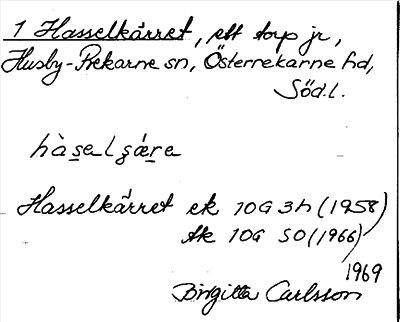 1 Hasselkärret, ett torp jr,
Husby-Rekarne sn, Österrekarne hd,
Söd.l.
hàsalɕä́re
Hasselkärret ek 10G 3h (1958)
tk 10G SO (1966)
1969
Birgitta Carlsson